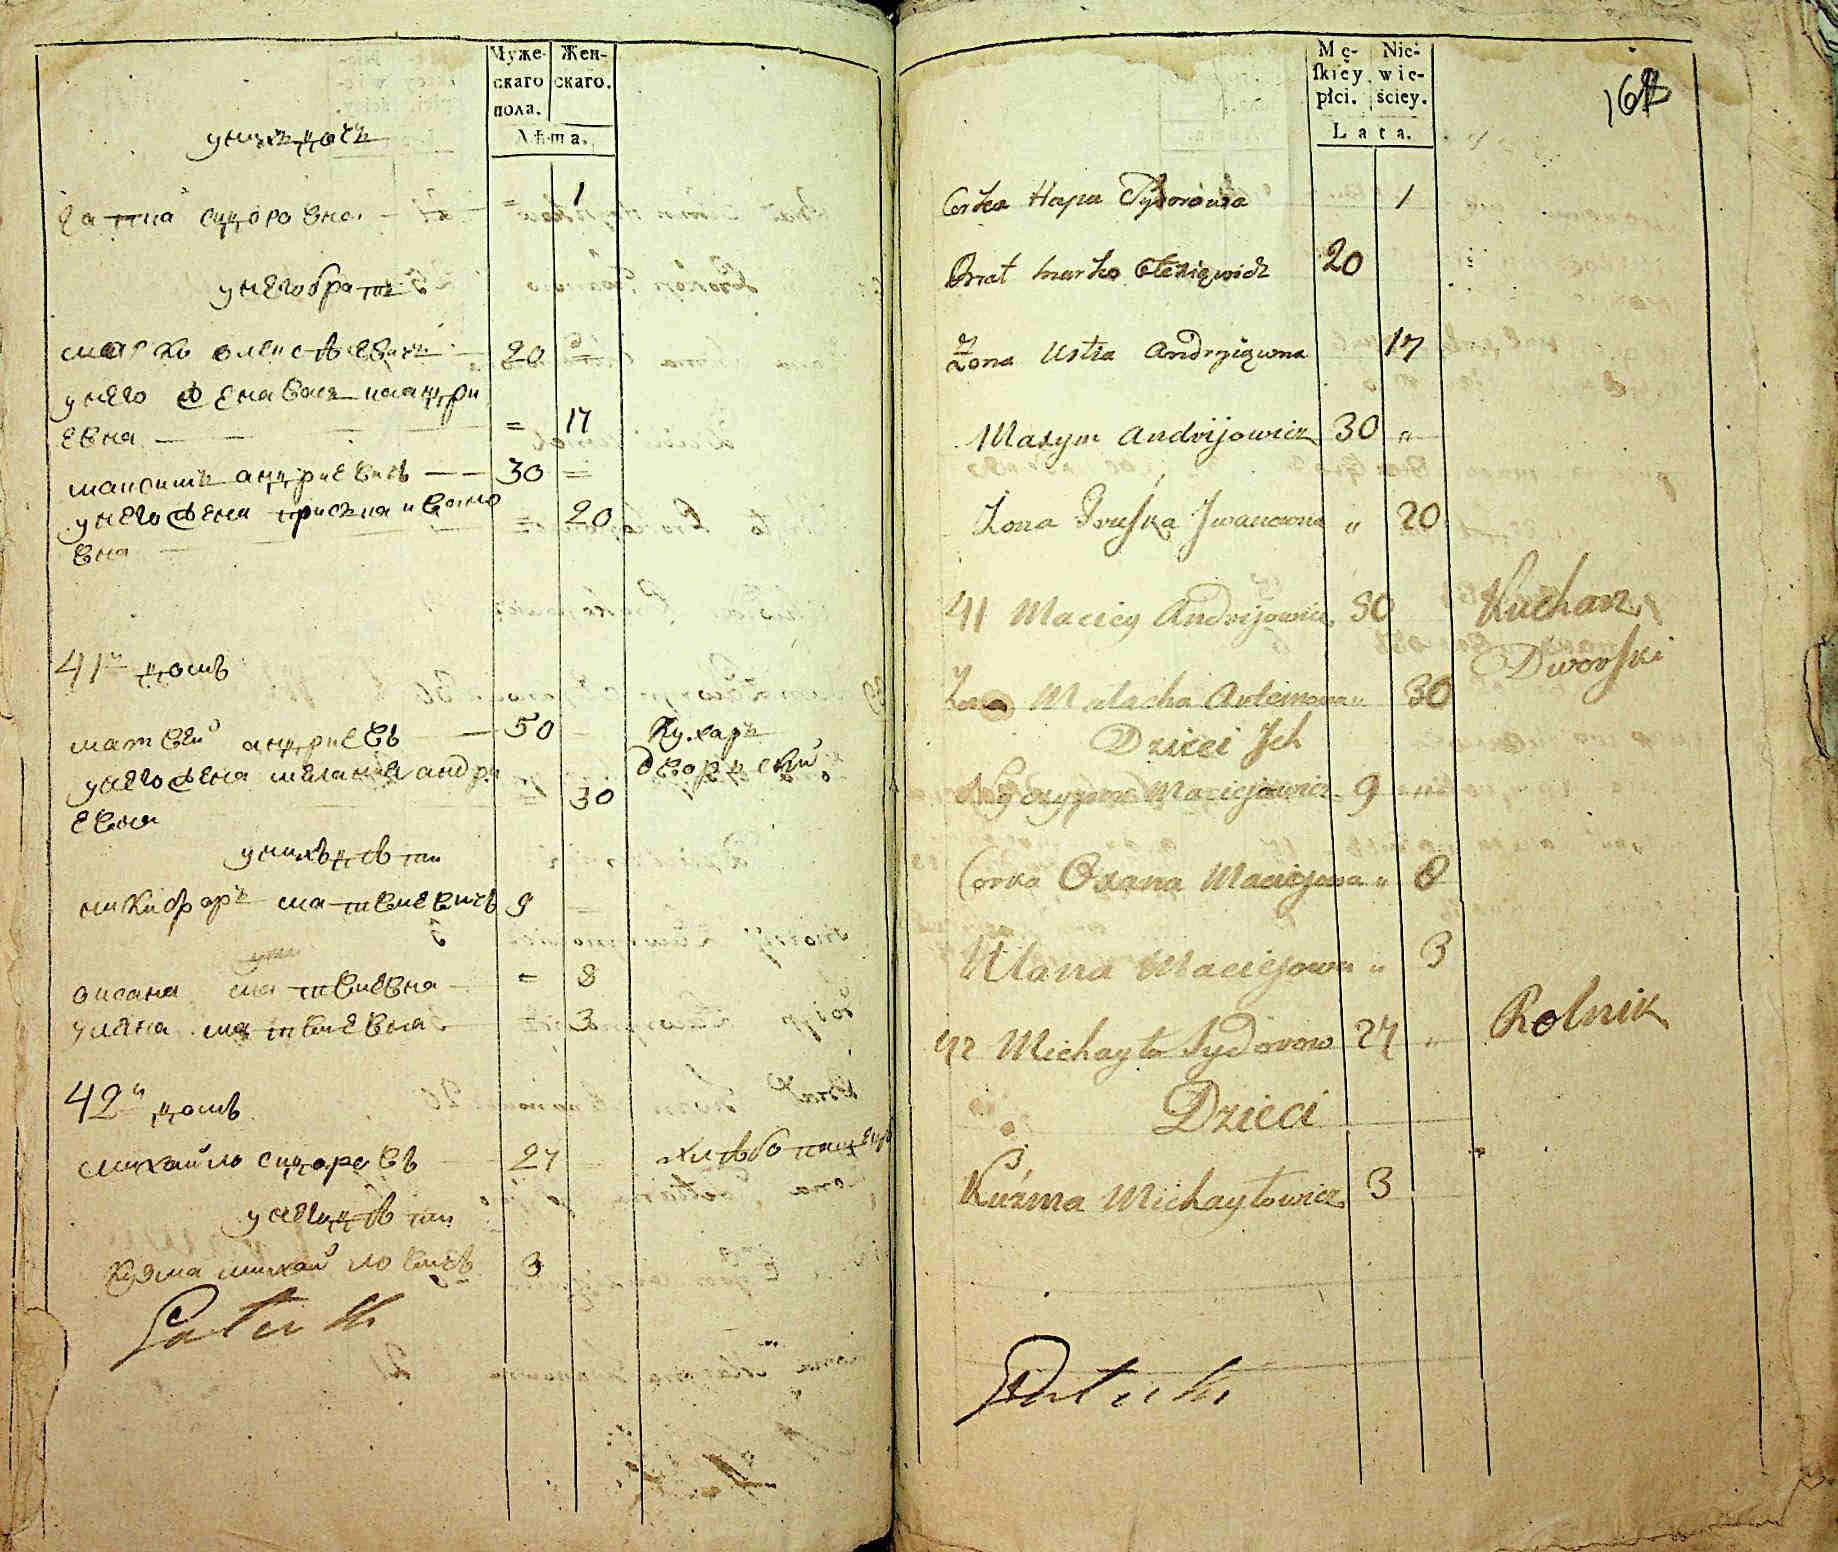 Муже-
скаго
пола.
Жен-
скаго.
Лѣта.
у нихъ дочь
Гапиа сидоровна — = 1
у него братъ
марко — 20 =
у него жена андри
евна — = 17
максимъ андриевичъ — 30 =
у него жена присъка ивано 20
вна
41й домъ
матвей андриевъ — 50 — Кухаръ
дворцкий
у него жена мелания андри
евна 30
у нихъ дѣти
никифоръ матвиевичъ 9 =
оксана матвиевна — = 8
уляна матвиевна 3
42й домъ
михайло сидоровъ — 27 — хлѣбопашецъ
у него дѣти
кузма михайловичъ 3
Mę-
skiey
płci.
Nie-
wie-
ściey.
Lata.
Corka Hapa Sydorowa 1
Brat Marko 20
Żona Ustia Andryiowna 17
Maxym Andryiowicz 30 "
Żona Pruska Jwanowna " 20
41 Maciey Andryiowicz 50 Kucharz
Dworski
Żona Małacha " 30
Dzieci Jch
Maciejowicz 9
Corka Oxana Maciejowna " 8
Ulana Maciejowna " 3
42 Michayło Sydorow 27 " Rolnik
Dzieci
Kuźma Michayłowicz 3